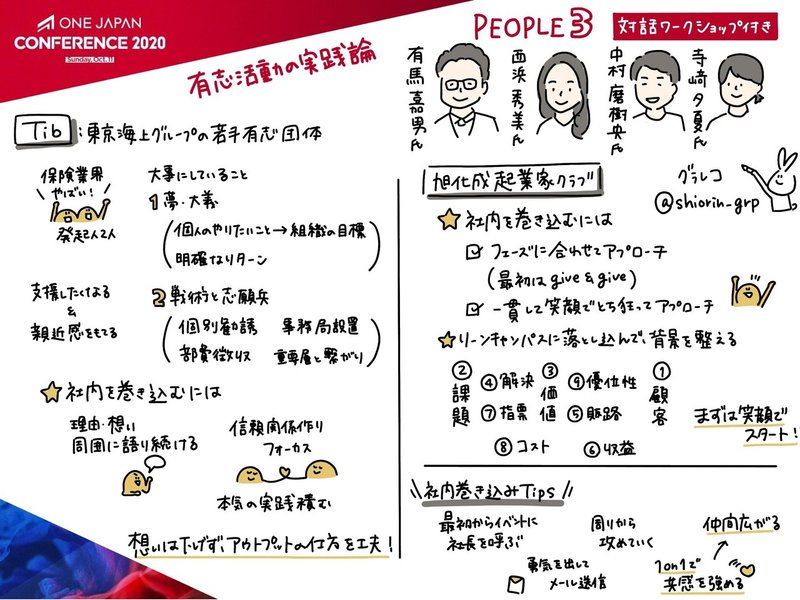 ONE JAPAN
CONFERENCE 2020
Sunday, Oct. 11
有志活動の実践論
PEOPLE3
対話ワークショップ付き
有馬嘉男氏
西浜秀美氏
中村磨樹央氏
寺﨑夕夏氏
Tib:東京海上グループの若手有志団体
保険業界
やばい!
発起人2人
大事にしていること
1 夢・大義
(個人のやりたいこと→組織の目標
明確なリターン)
支援したくなる
&
親近感をもてる
2 戦術と志願兵
(個別勧誘 事務局設置
部費徴収 重要層と繋がり)
☆社内を巻き込むには
理由・想い
周囲に語り続ける
信頼関係作り
フォーカス
本気の実践積む
想いは下げず、アウトプットの仕方を工夫!
旭化成起業家クラブ
グラレコ
@shiorin_grp
☆社内を巻き込むには
☑フェーズに合わせてアプローチ
(最初はgive & give)
☑一貫して笑顔でとち狂ってアプローチ
☆リーンキャンパスに落とし込んで、背景を整える
②課題
④解決
⑦指標
③価値
⑨優位性
⑤販路
①顧客
⑧コスト
⑥収益
まずは笑顔で
スタート!
\\社内巻き込みTips//
最初からイベントに
社長を呼ぶ
周りから
攻めていく
仲間広がる
勇気を出して
メール送信
1on1で
共感を強める